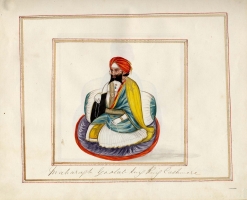 Maharajah Goolab Sing of Cashmere